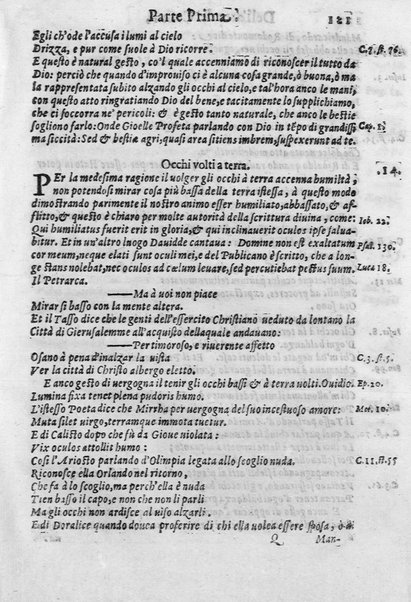 Parte Prima. 121
Egli ch'ode l'accusa i lumi al cielo
Drizza, e pur come suole à Dio ricorre. C. 7. st. 76.
E questo è natural gesto, co'l quale accenniamo di riconoscer il tutto da
Dio: perciò che quando d'improuiso ci è alcuna cosa grande, ò buona, ò ma
la rappresentata subito alzando gli occhi al cielo, e tal'hora anco le mani,
con questo atto ringratiando Dio del bene, e tacitamente lo supplichiamo,
che ci soccorra ne' pericoli: & è gesto tanto naturale, che anco le bestie
sogliono farlo: Onde Gioelle Profeta parlando con Dio in tẽpo di grandissi Cap. 1.
ma siccità: Sed & bestiæ agri, quasi area sitiens imbrem, suspexerunt ad te.
Occhi volti a terra. 14.
PEr la medesima ragione il uolger gli occhi à terra accenna humiltà,
non potendosi mirar cosa più bassa della terra istessa, à questo modo
dimostrando parimente il nostro animo esser humiliato, abbassato, & af-
flitto, & questo è chiaro per molte autorità della scrittura diuina, come: Iob. 22.
Qui humiliatus fuerit erit in gloria, & qui inclinauerit oculos ipse salua-
bitur. Et in un'altro luogo Dauidde cantaua: Domine non est exaltatum Psal. 130.
cor meum, neque elati sunt oculi mei, e del Publicano è scritto, che a lon-
ge stans nolebat, nec oculos ad cœlum leuare, sed percutiebat pectus suum. Luca 18.
Il Petrarca.
—— Ma à uoi non piace
Mirar sì basso con la mente altera.
Et il Tasso dice che le genti dell'essercito Christiano ueduto da lontano la
Città di Gierusalemme all'acquisto della quale andauano:
—— Per timoroso, e riuerente affetto
Osano à pena d'inalzar la uista C. 3. st. 5.
Ver la città di Christo albergo eletto.
E anco gesto di uergogna il tenir gli occhi bassi & à terra uolti. Ouidio. Ep. 20.
Lumina fixa tenet plena pudoris humo.
L'istesso Poeta dice che Mirrha per uergogna del suo incestuoso amore: Met. 10.
Muta silet uirgo, terramque immota tuetur.
E di Calisto dopo che fù da Gioue uiolata:
Vix oculos attollit humo:
Così l'Ariosto parlando d'Olimpia legata allo scoglio nuda. C. 11. st. 55
Riconosce ella Orlando nel ritorno,
Che fà à lo scoglio, ma perch'ella è nuda
Tien basso il capo, e non che non li parli
Ma gli occhi non ardisce al uiso alzarli.
E di Doralice quando douea proferire di chi ella uolea essere sposa, ò di
Q Man-